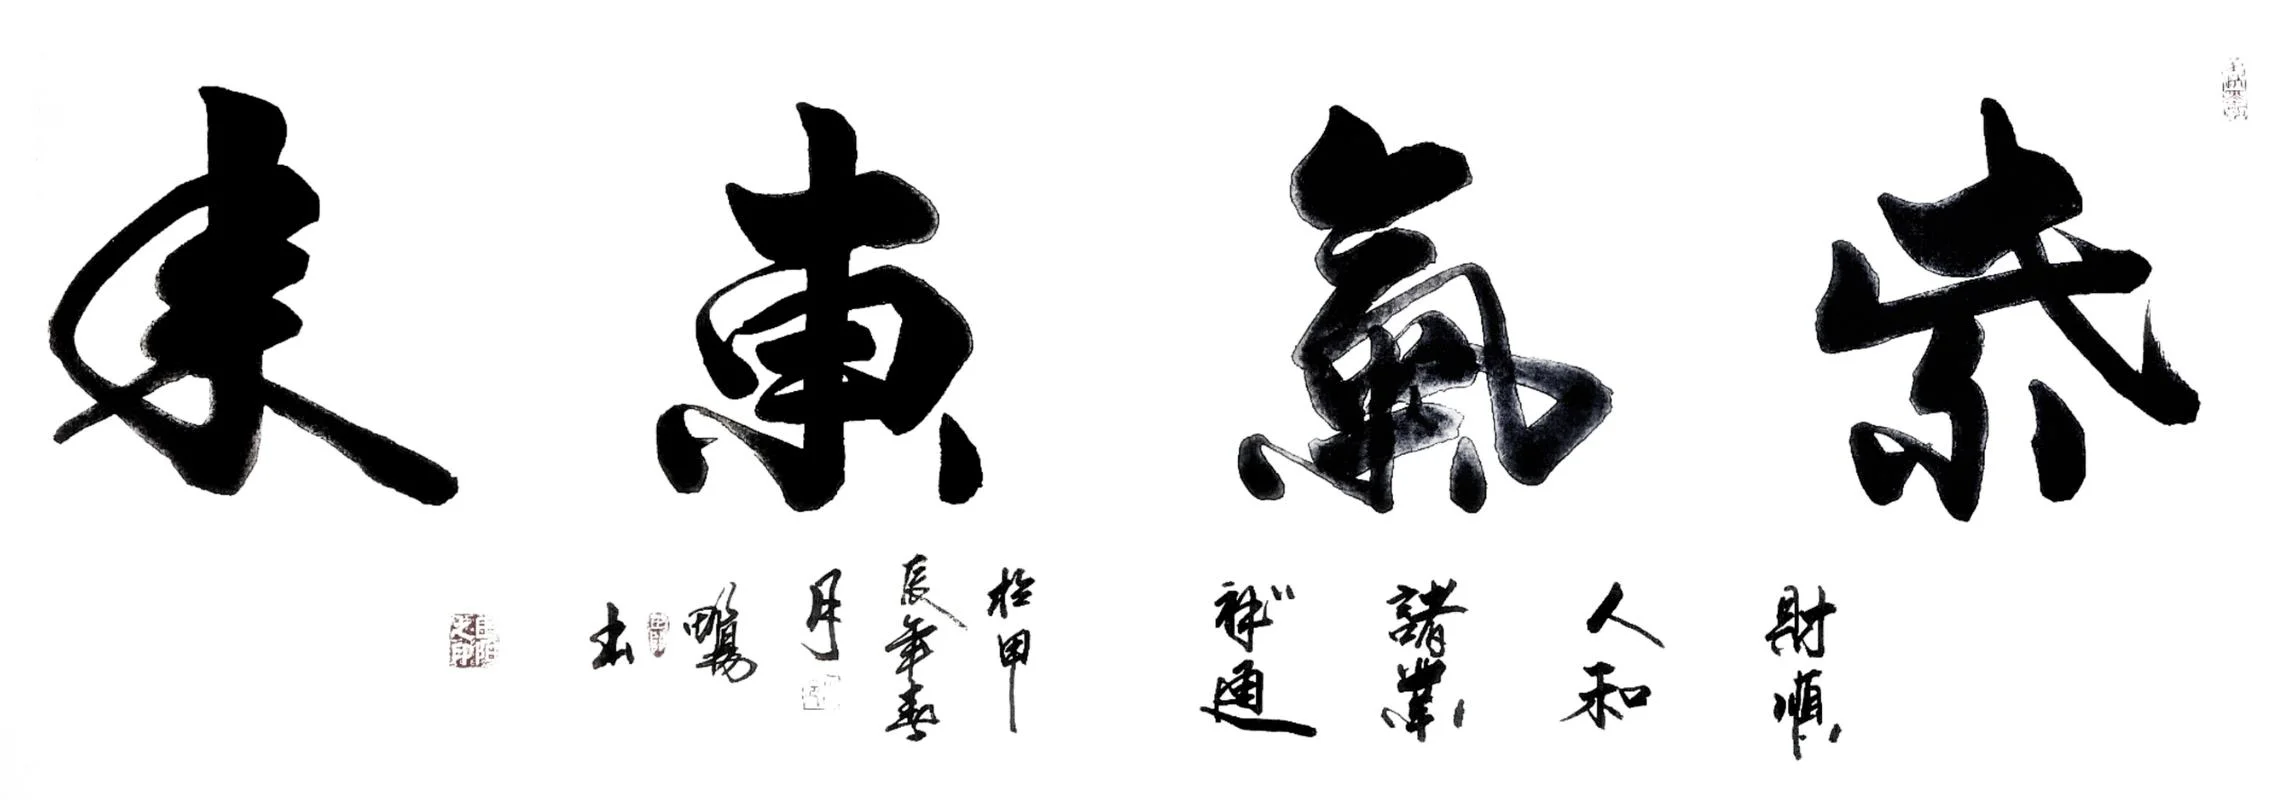 紫氣東來
財順
人和
諸業
祥通
於甲
辰年春
月
書